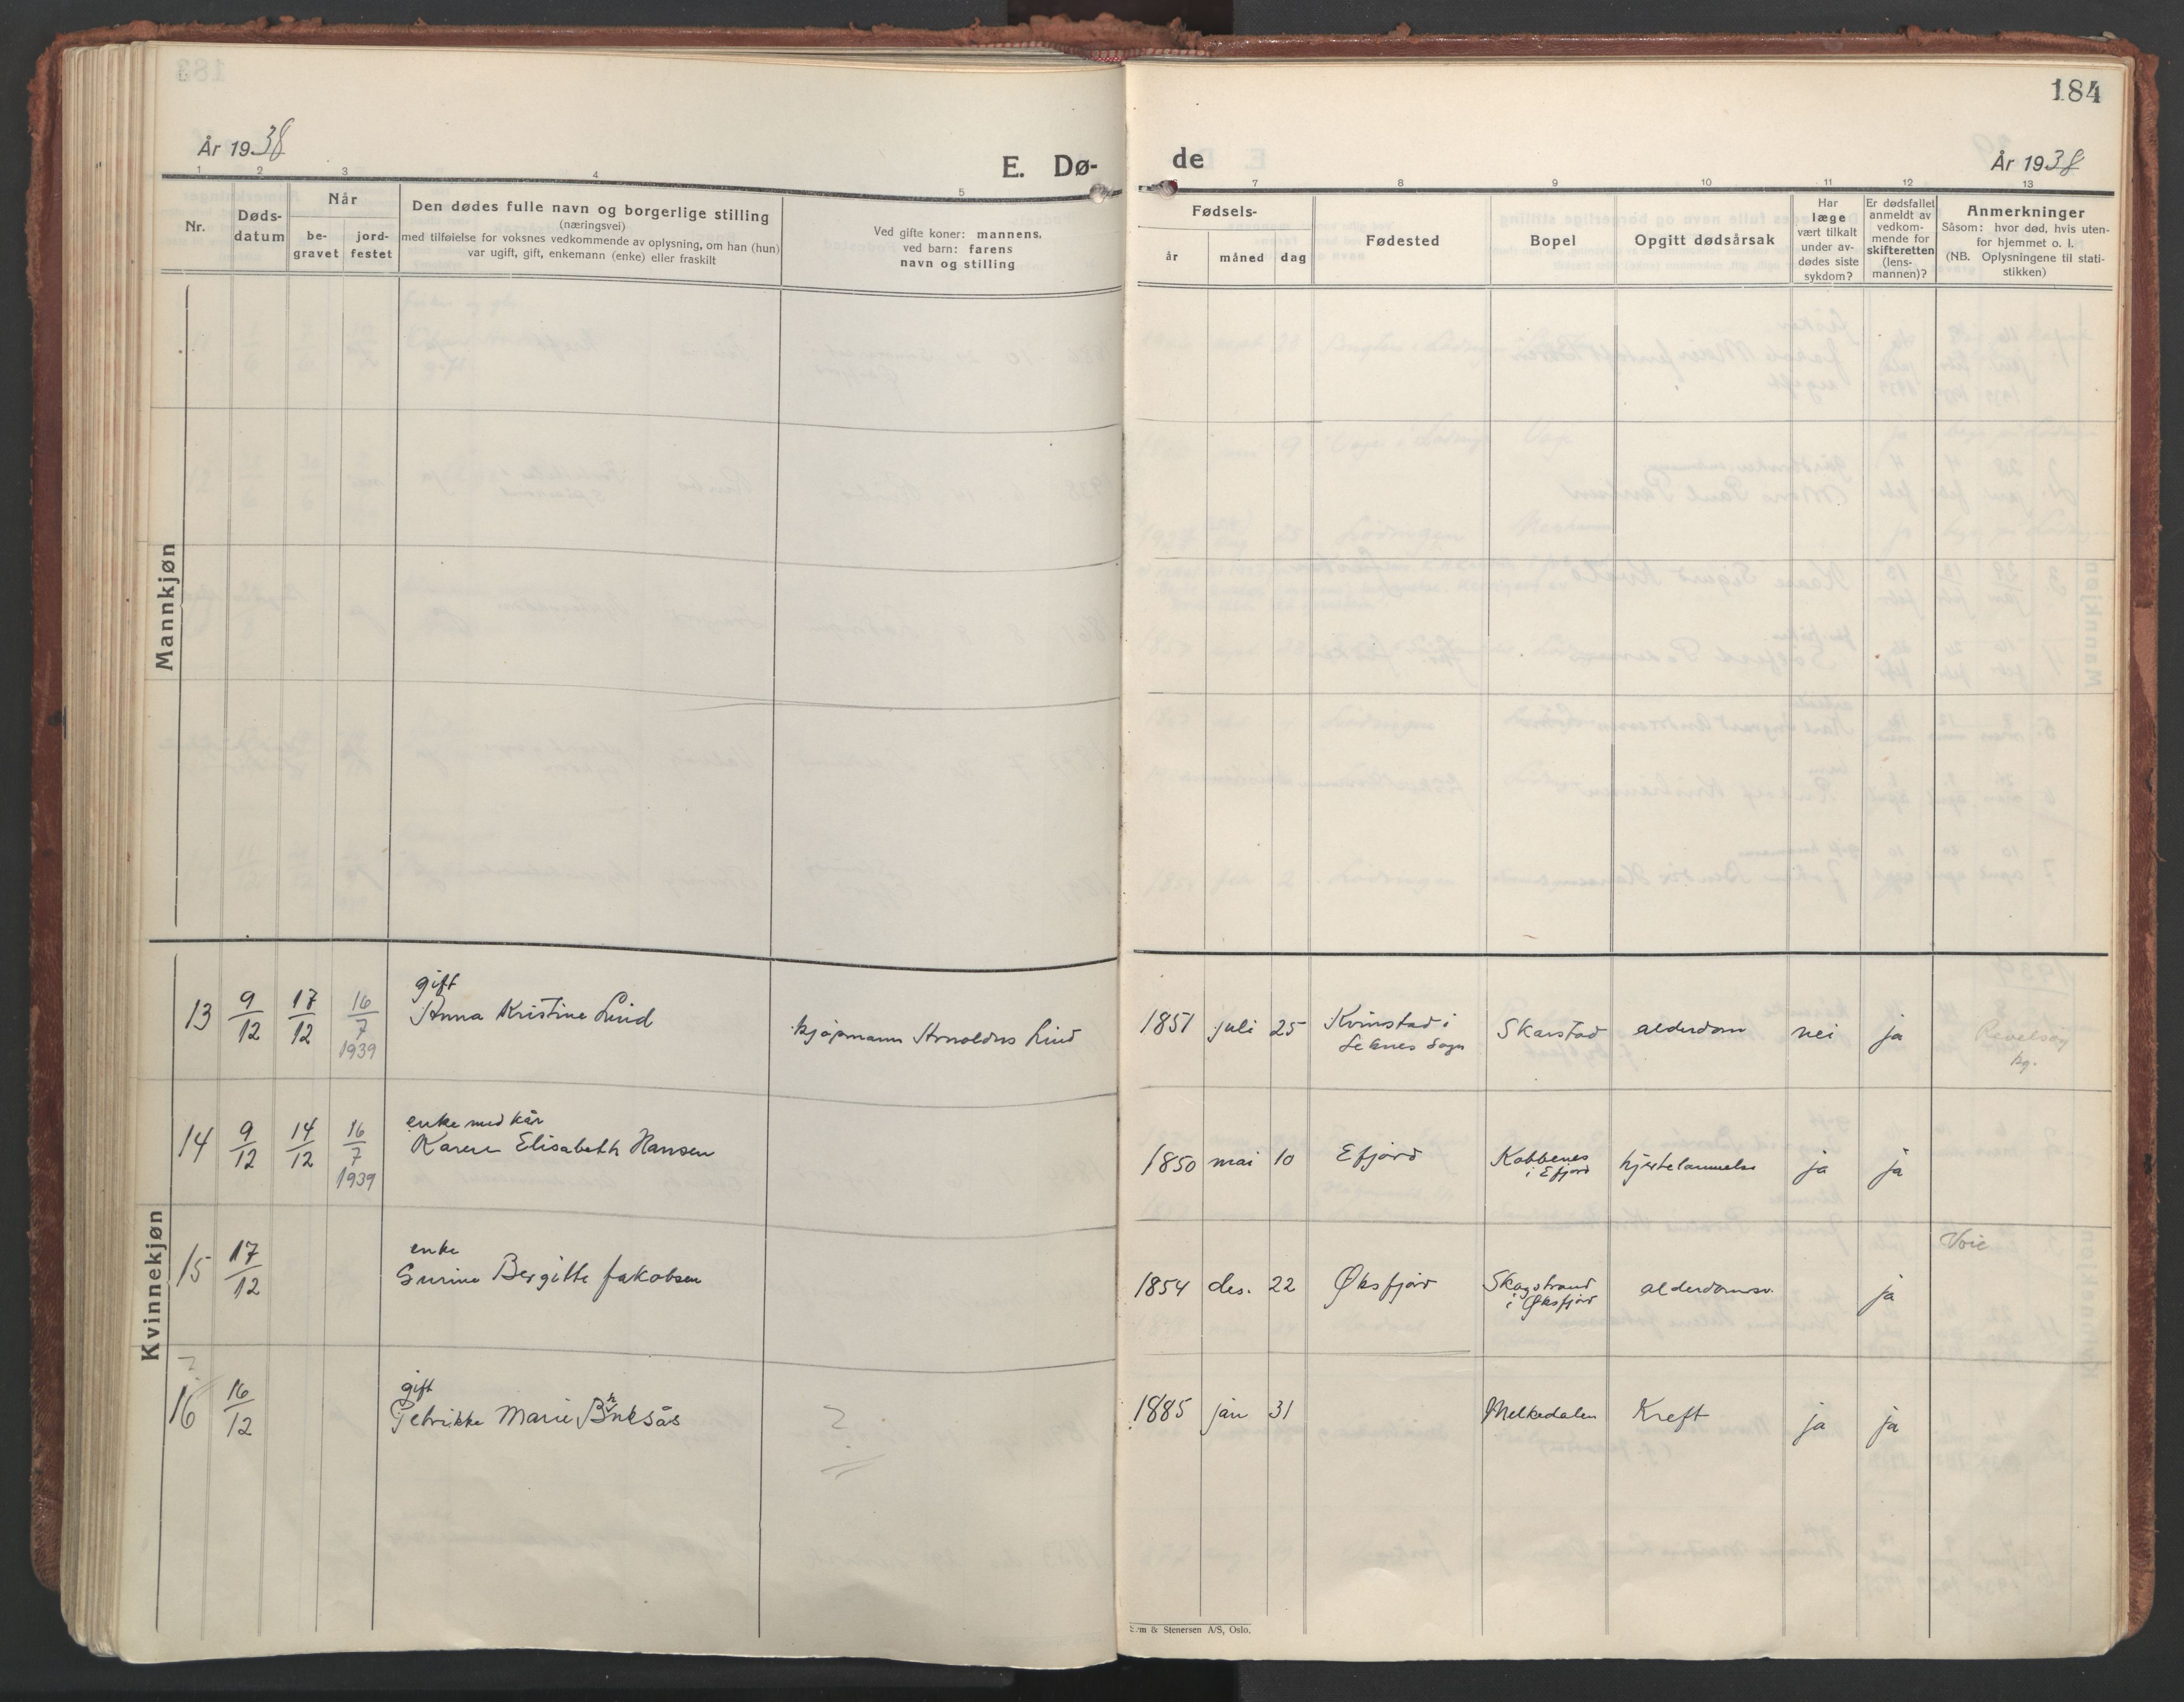 184
År 1938
E. Dø-
de
År 1938
1 2 3 4 5 7 8 9 10 11 12 13
Nr.
Døds-
datum
Når
be-
gravet
jord-
festet
Den dødes fulle navn og borgerlige stilling
(næringsvei)
med tilføielse for voksnes vedkommende av oplysning, om han (hun)
var ugift, gift, enkemann (enke) eller fraskilt
Ved gifte koner: mannens,
ved barn: farens
navn og stilling
Fødsels-
år
måned
dag
Fødested
Bopel
Opgitt dødsårsak
Har
læge
vært tilkalt
under av-
dødes siste
sykdom?
Er dødsfallet
anmeldt av
vedkom-
mende for
skifteretten
(lens-
mannen)?
Anmerkninger
Såsom: hvor død, hvis uten-
for hjemmet o. l.
(NB. Oplysningene til stati-
stikken)
Mannkjøn
Kvinnekjøn
13 9/12 17/12 16/7 1939
gift
Anna Kristine Lind
kjøpmann Arnoldus Lind
1851 juli 25
Kvinstad i
Sogn
Skarstad alderdom nei ja
14 9/12 14/12 16/7 1939
enke med kår
Karen Elisabeth Hansen
1850 mai 10 Efjord
Kobbenes
i Efjord
hjertelammelse ja ja
15 17/12
enke
Bergitte Jakobsen
1854 des. 22 Øksfjord
Skogstrand
i Øksfjord
alderdomssv. ja
Voie
?
16 16/12
gift
Petrikke Marie
?
1885 jan 31 Melkedalen Kreft ja ja
& Stenersen A/S, Oslo.